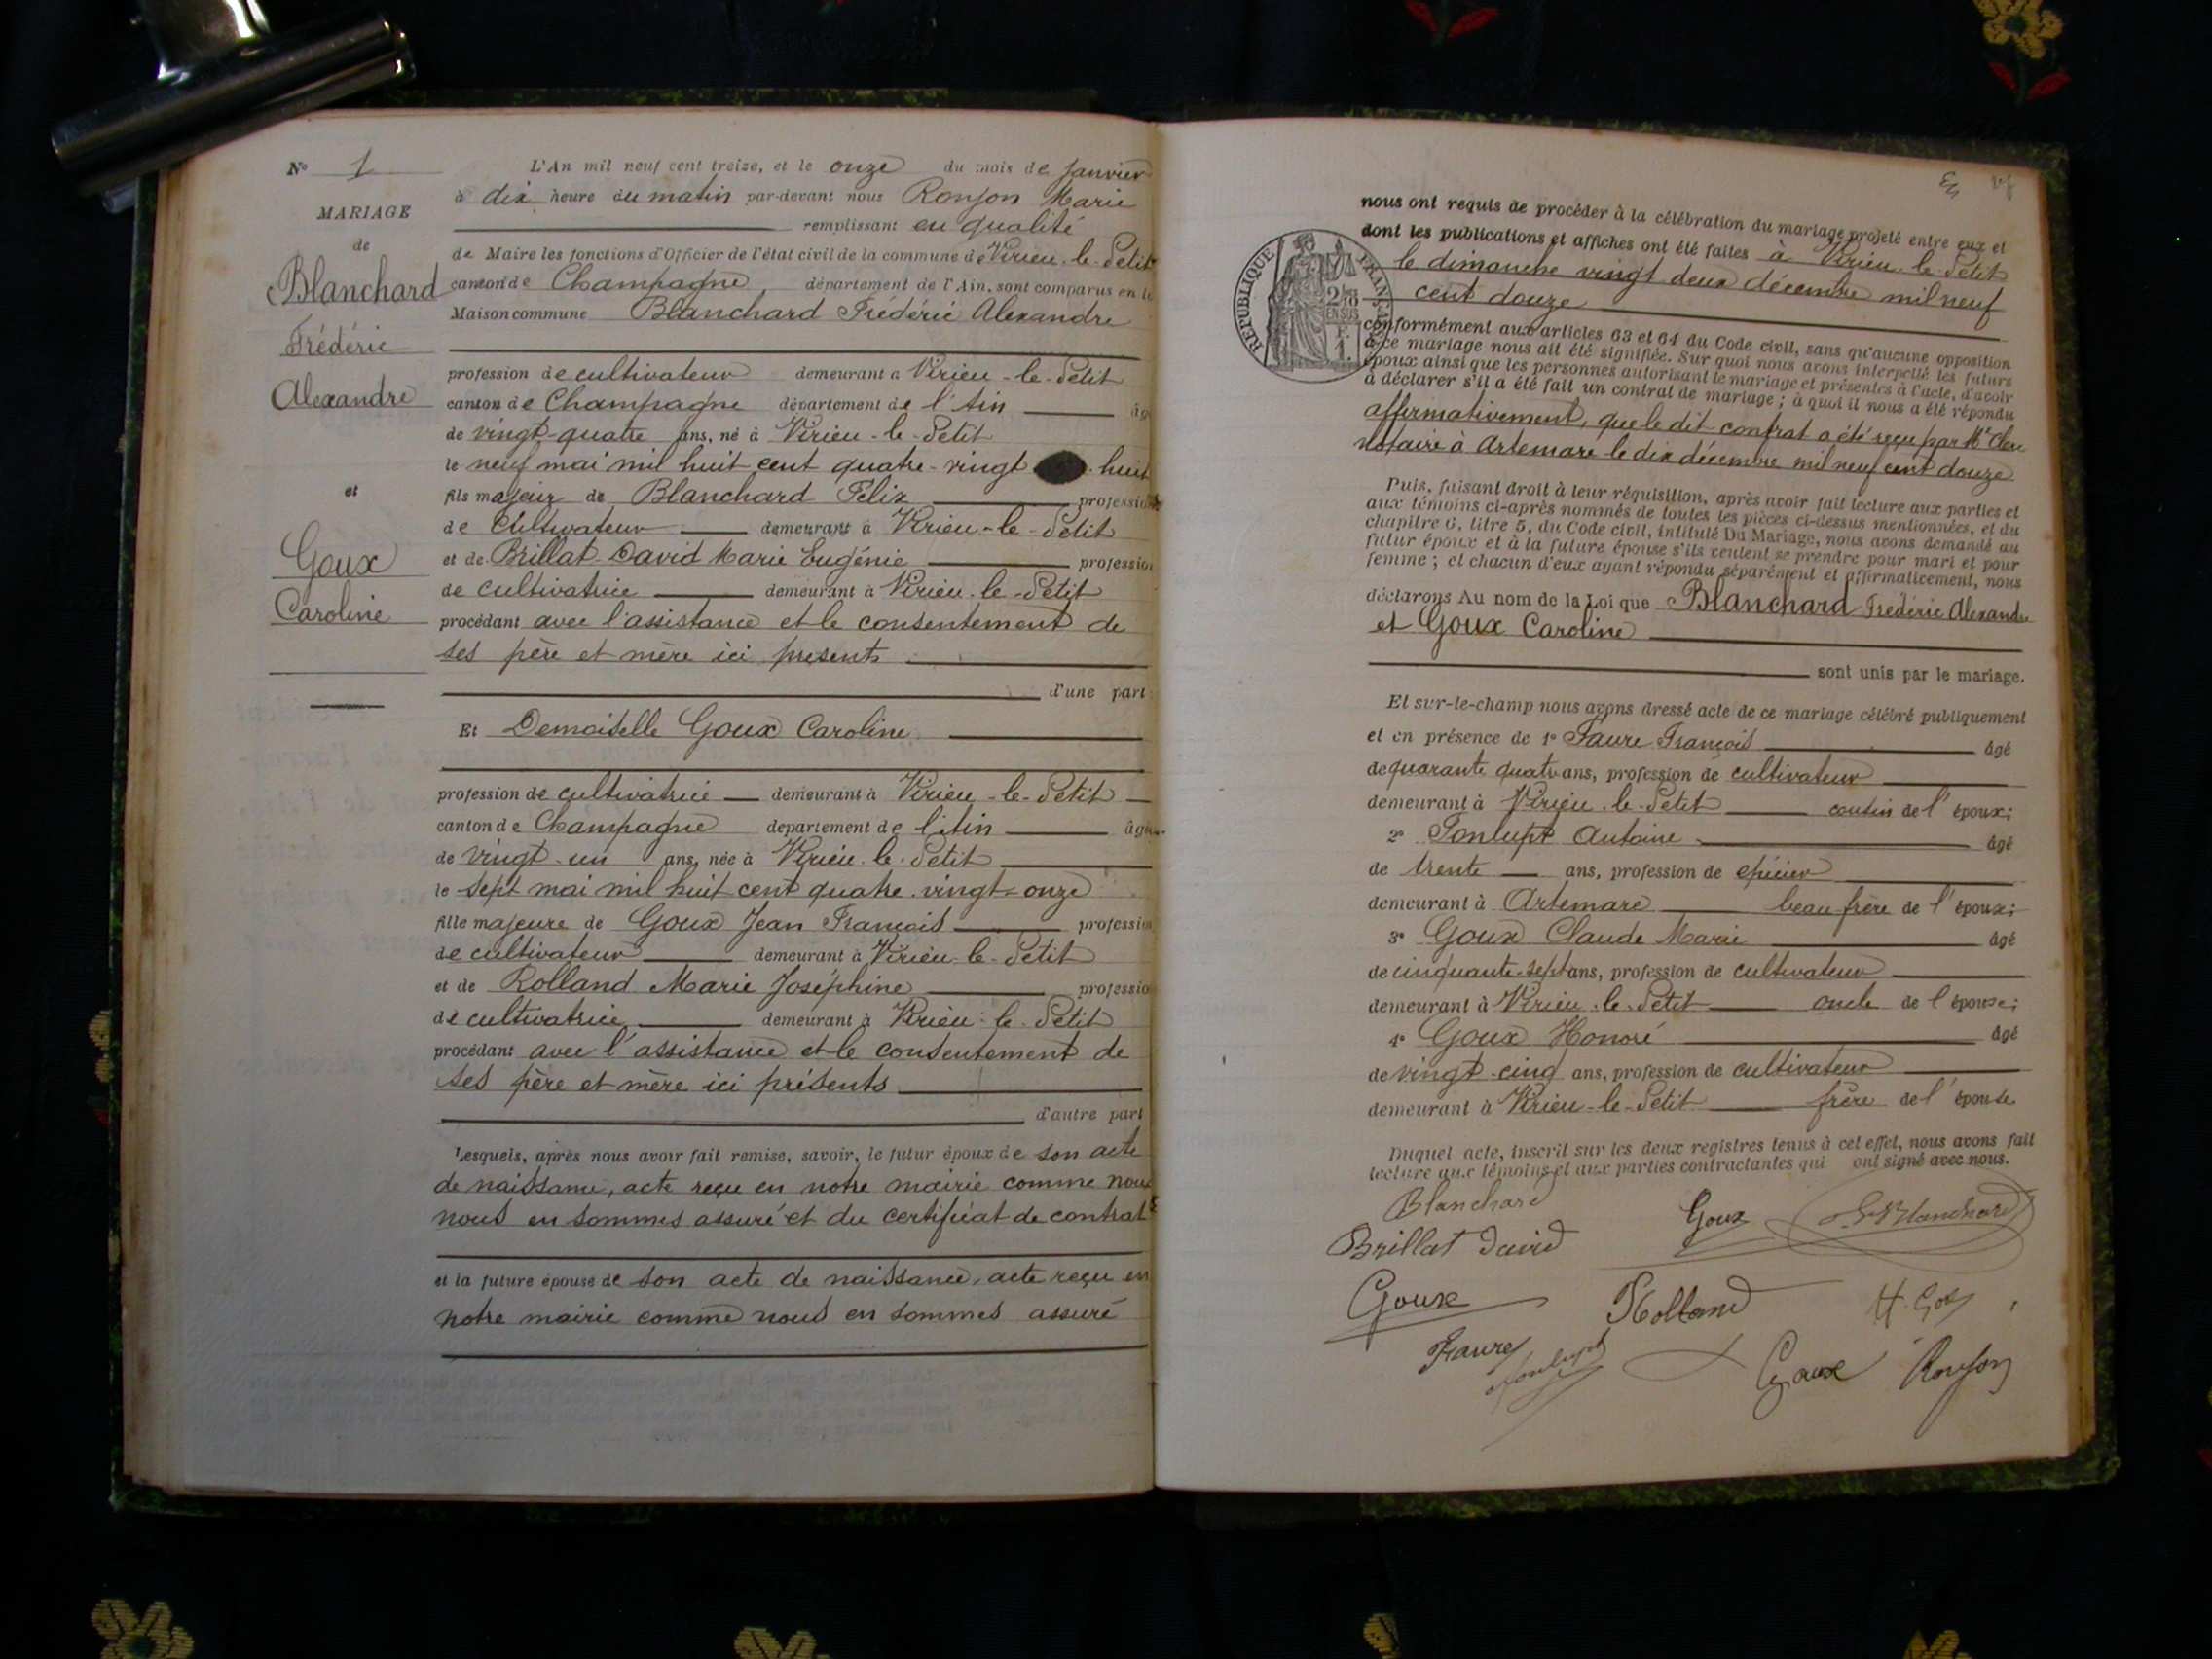 N° 1
MARIAGE
de
Blanchard
Frédéric
Alexandre
et
Goux
Caroline
L'An mil neuf cent treize, et le onze du mois de Janvier
à dix heure du matin par-devant nous Ronjon Marie
remplissant en qualité
de Maire les fonctions d'Officier de l'état civil de la commune de Virieu-le-Petit
canton de Champagne, département de l'Ain, sont comparus en la
Maison commune Blanchard Frédéric Alexandre
profession de cultivateur demeurant à Virieu-le-Petit
canton de Champagne département de l'Ain âgé
de vingt-quatre ans, né à Virieu-le-Petit
le neuf mai mil huit cent quatre-vingt huit
fils majeur de Blanchard Félix profession
de cultivateur demeurant à Virieu-le-Petit
et de Brillat-David Marie Eugénie profession
de cultivatrice demeurant à Virieu-le-Petit
procédant avec l'assistance et le consentement de
ses père et mère ici présents
d'une part
Et Demoiselle Goux Caroline
profession de cultivatrice demeurant à Virieu-le-Petit
canton de Champagne département de l'Ain âgée
de vingt-un ans, née à Virieu-le-Petit
le sept mai mil huit cent quatre-vingt-onze
fille majeure de Goux Jean François profession
de cultivateur demeurant à Virieu-le-Petit
et de Rolland Marie Joséphine profession
de cultivatrice demeurant à Virieu-le-Petit
procédant avec l'assistance et le consentement de
ses père et mère ici présents
d'autre part
Lesquels, après nous avoir fait remise, savoir, le futur époux de son acte
de naissance, acte reçu en notre mairie comme nous
nous en sommes assuré et du certificat de contrat
et la future épouse de son acte de naissance, acte reçu en
notre mairie comme nous en sommes assuré
nous ont requis de procéder à la célébration du mariage projeté entre eux et
dont les publications et affiches ont été faites à Virieu-le-Petit
le dimanche vingt deux décembre mil neuf
cent douze
REPUBLIQUE FRANÇAISE
2/10
EN SUS
F.
1.
conformément aux articles 63 et 64 du Code civil, sans qu'aucune opposition
à ce mariage nous ait été signifiée. Sur quoi nous avons interpellé les futurs
époux ainsi que les personnes autorisant le mariage et présentes à l'acte, d'avoir
à déclarer s'il a été fait un contrat de mariage; à quoi il nous a été répondu
affirmativement, que le dit contrat a été reçu par Me
notaire à Artemare le dix décembre mil neuf cent douze
Puis, faisant droit à leur réquisition, après avoir fait lecture aux parties et
aux témoins ci-après nommés de toutes les pièces ci-dessus mentionnées, et du
chapitre 6, titre 5, du Code civil, intitulé Du Mariage, nous avons demandé au
futur époux et à la future épouse s'ils veulent se prendre pour mari et pour
femme; et chacun d'eux ayant répondu séparément et affirmativement, nous
déclarons Au nom de la Loi que Blanchard Frédéric Alexandre
et Goux Caroline
sont unis par le mariage.
Et sur-le-champ nous avons dressé acte de ce mariage célébré publiquement
et en présence de 1° Faure François âgé
de quarante quatre ans, profession de cultivateur
demeurant à Virieu-le-Petit cousin de l'époux;
2° Tonlupt Antoine âgé
de trente ans, profession de épicier
demeurant à Artemare beau frère de l'époux;
3° Goux Claude Marie âgé
de cinquante-sept ans, profession de cultivateur
demeurant à Virieu-le-Petit oncle de l'épouse;
4° Goux Honoré âgé
de vingt-cinq ans, profession de cultivateur
demeurant à Virieu-le-Petit frère de l'épouse
Duquel acte, inscrit sur les deux registres tenus à cet effet, nous avons fait
lecture aux témoins et aux parties contractantes qui ont signé avec nous.
Blanchard Goux Blanchard
Brillat David
Goux Rolland
Faure Tonlupt Goux Ronjon